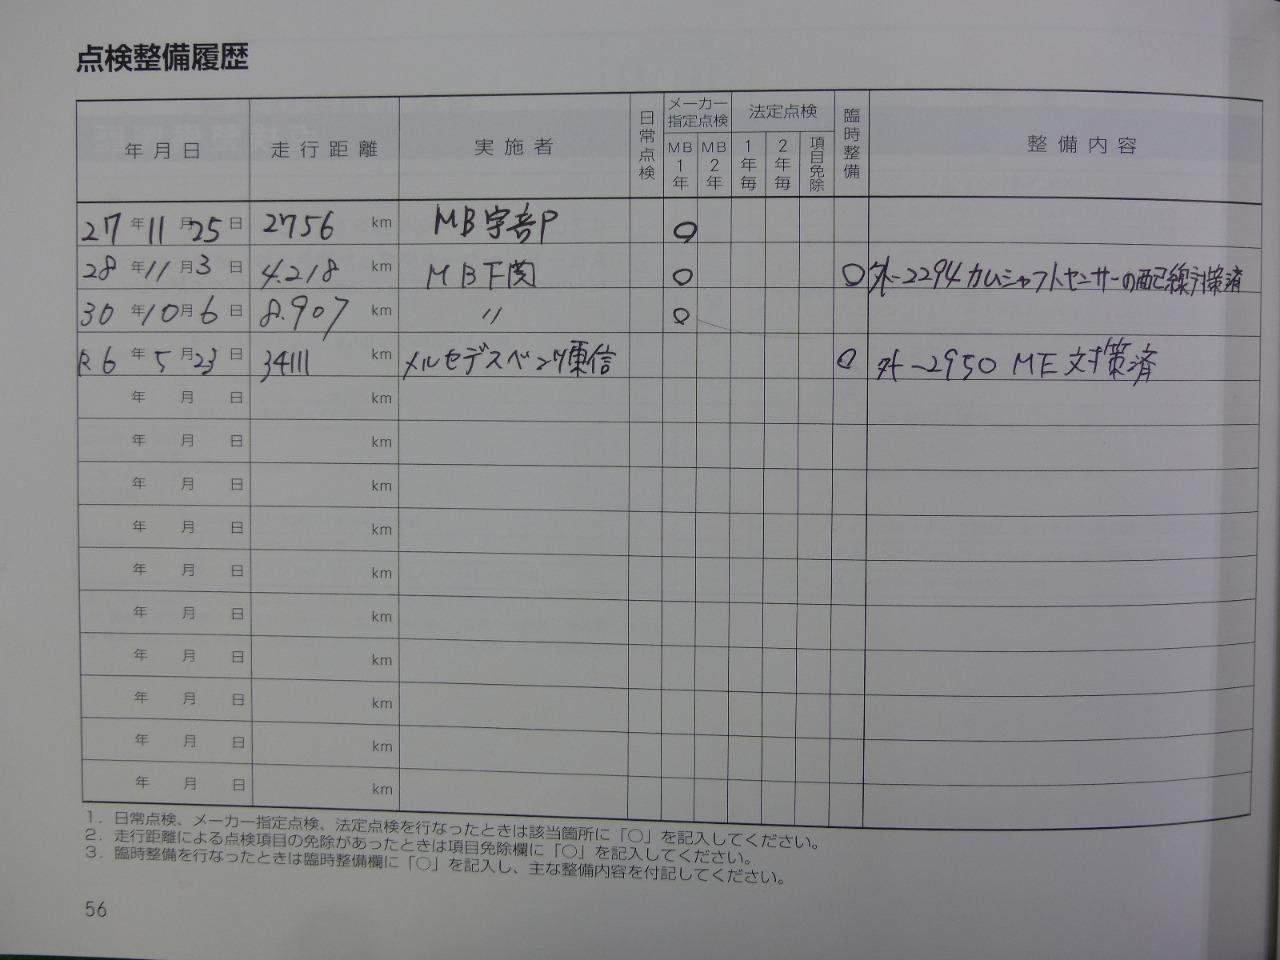 点検整備履歴
年月日 走行距離 実施者 日常点検 メーカー指定点検 MB1年 MB2年 法定点検 1年毎 2年毎 項目免除 臨時整備 整備内容
27年11月25日 2756 km MB宇部P ○
28年11月3日 4.218 km MB下関 ○ ○ 外-2294 カムシャフトセンサーの配線対策済
30年10月6日 8.907 km 〃 ○
R6年5月23日 34111 km メルセデスベンツ東信 ○ 外-2950 ME対策済
年 月 日 km
年 月 日 km
年 月 日 km
年 月 日 km
年 月 日 km
年 月 日 km
年 月 日 km
年 月 日 km
年 月 日 km
年 月 日 km
1．日常点検、メーカー指定点検、法定点検を行なったときは該当箇所に「○」を記入してください。
2．走行距離による点検項目の免除があったときは項目免除欄に「○」を記入してください。
3．臨時整備を行なったときは臨時整備欄に「○」を記入し、主な整備内容を付記してください。
56